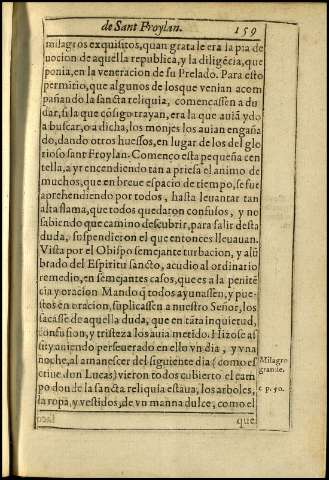 de Sant Froylan. 159
milagros exquisitos, quan grata le era la pia de
uocion de aquella republica, y la diligẽcia, que
ponia, en la veneracion de su Prelado. Para esto
permitio, que algunos de los que venian acom
pañando la sancta reliquia, comencassen a du
dar, si la que cõsigo trayan, era la que auiã ydo
a buscar, o a dicha, los monjes los auian engaña
do, dando otros huessos, en lugar de los del glo
rioso sant Froylan. Començo esta pequeña cen
tella, a yr encendiendo tan a priesa el animo de
muchos, que en breue espacio de tiempo, se fue
aprehendiendo por todos, hasta leuantar tan
alta flama, que todos quedaron confusos, y no
sabiendo que camino descubrir, para salir desta
duda, suspendieron el que entonces lleuauan.
Vista por el Obispo semejante turbacion, y alũ
brado del Espiritu sancto, acudio al ordinario
remedio, en semejantes casos, que es a la penitẽ
cia y oracion Mando q̃ todos ayunassen, y pue-
stos en oracion, suplicassen a nuestro Señor, los
sacasse de aquella duda, que en tãta inquietud,
confusion, y tristeza los auia metido. Hizose as
si ty auiendo perseuerado en ello vn dia, y vna
noche, al amanescer del siguiente dia (como es
criue don Lucas) vieron todos cubierto el cam
po donde la sancta reliquia estaua, los arboles,
la ropa, y vestidos, de vn manna dulce, como el
que
Milagro
grande.
c p. 50.